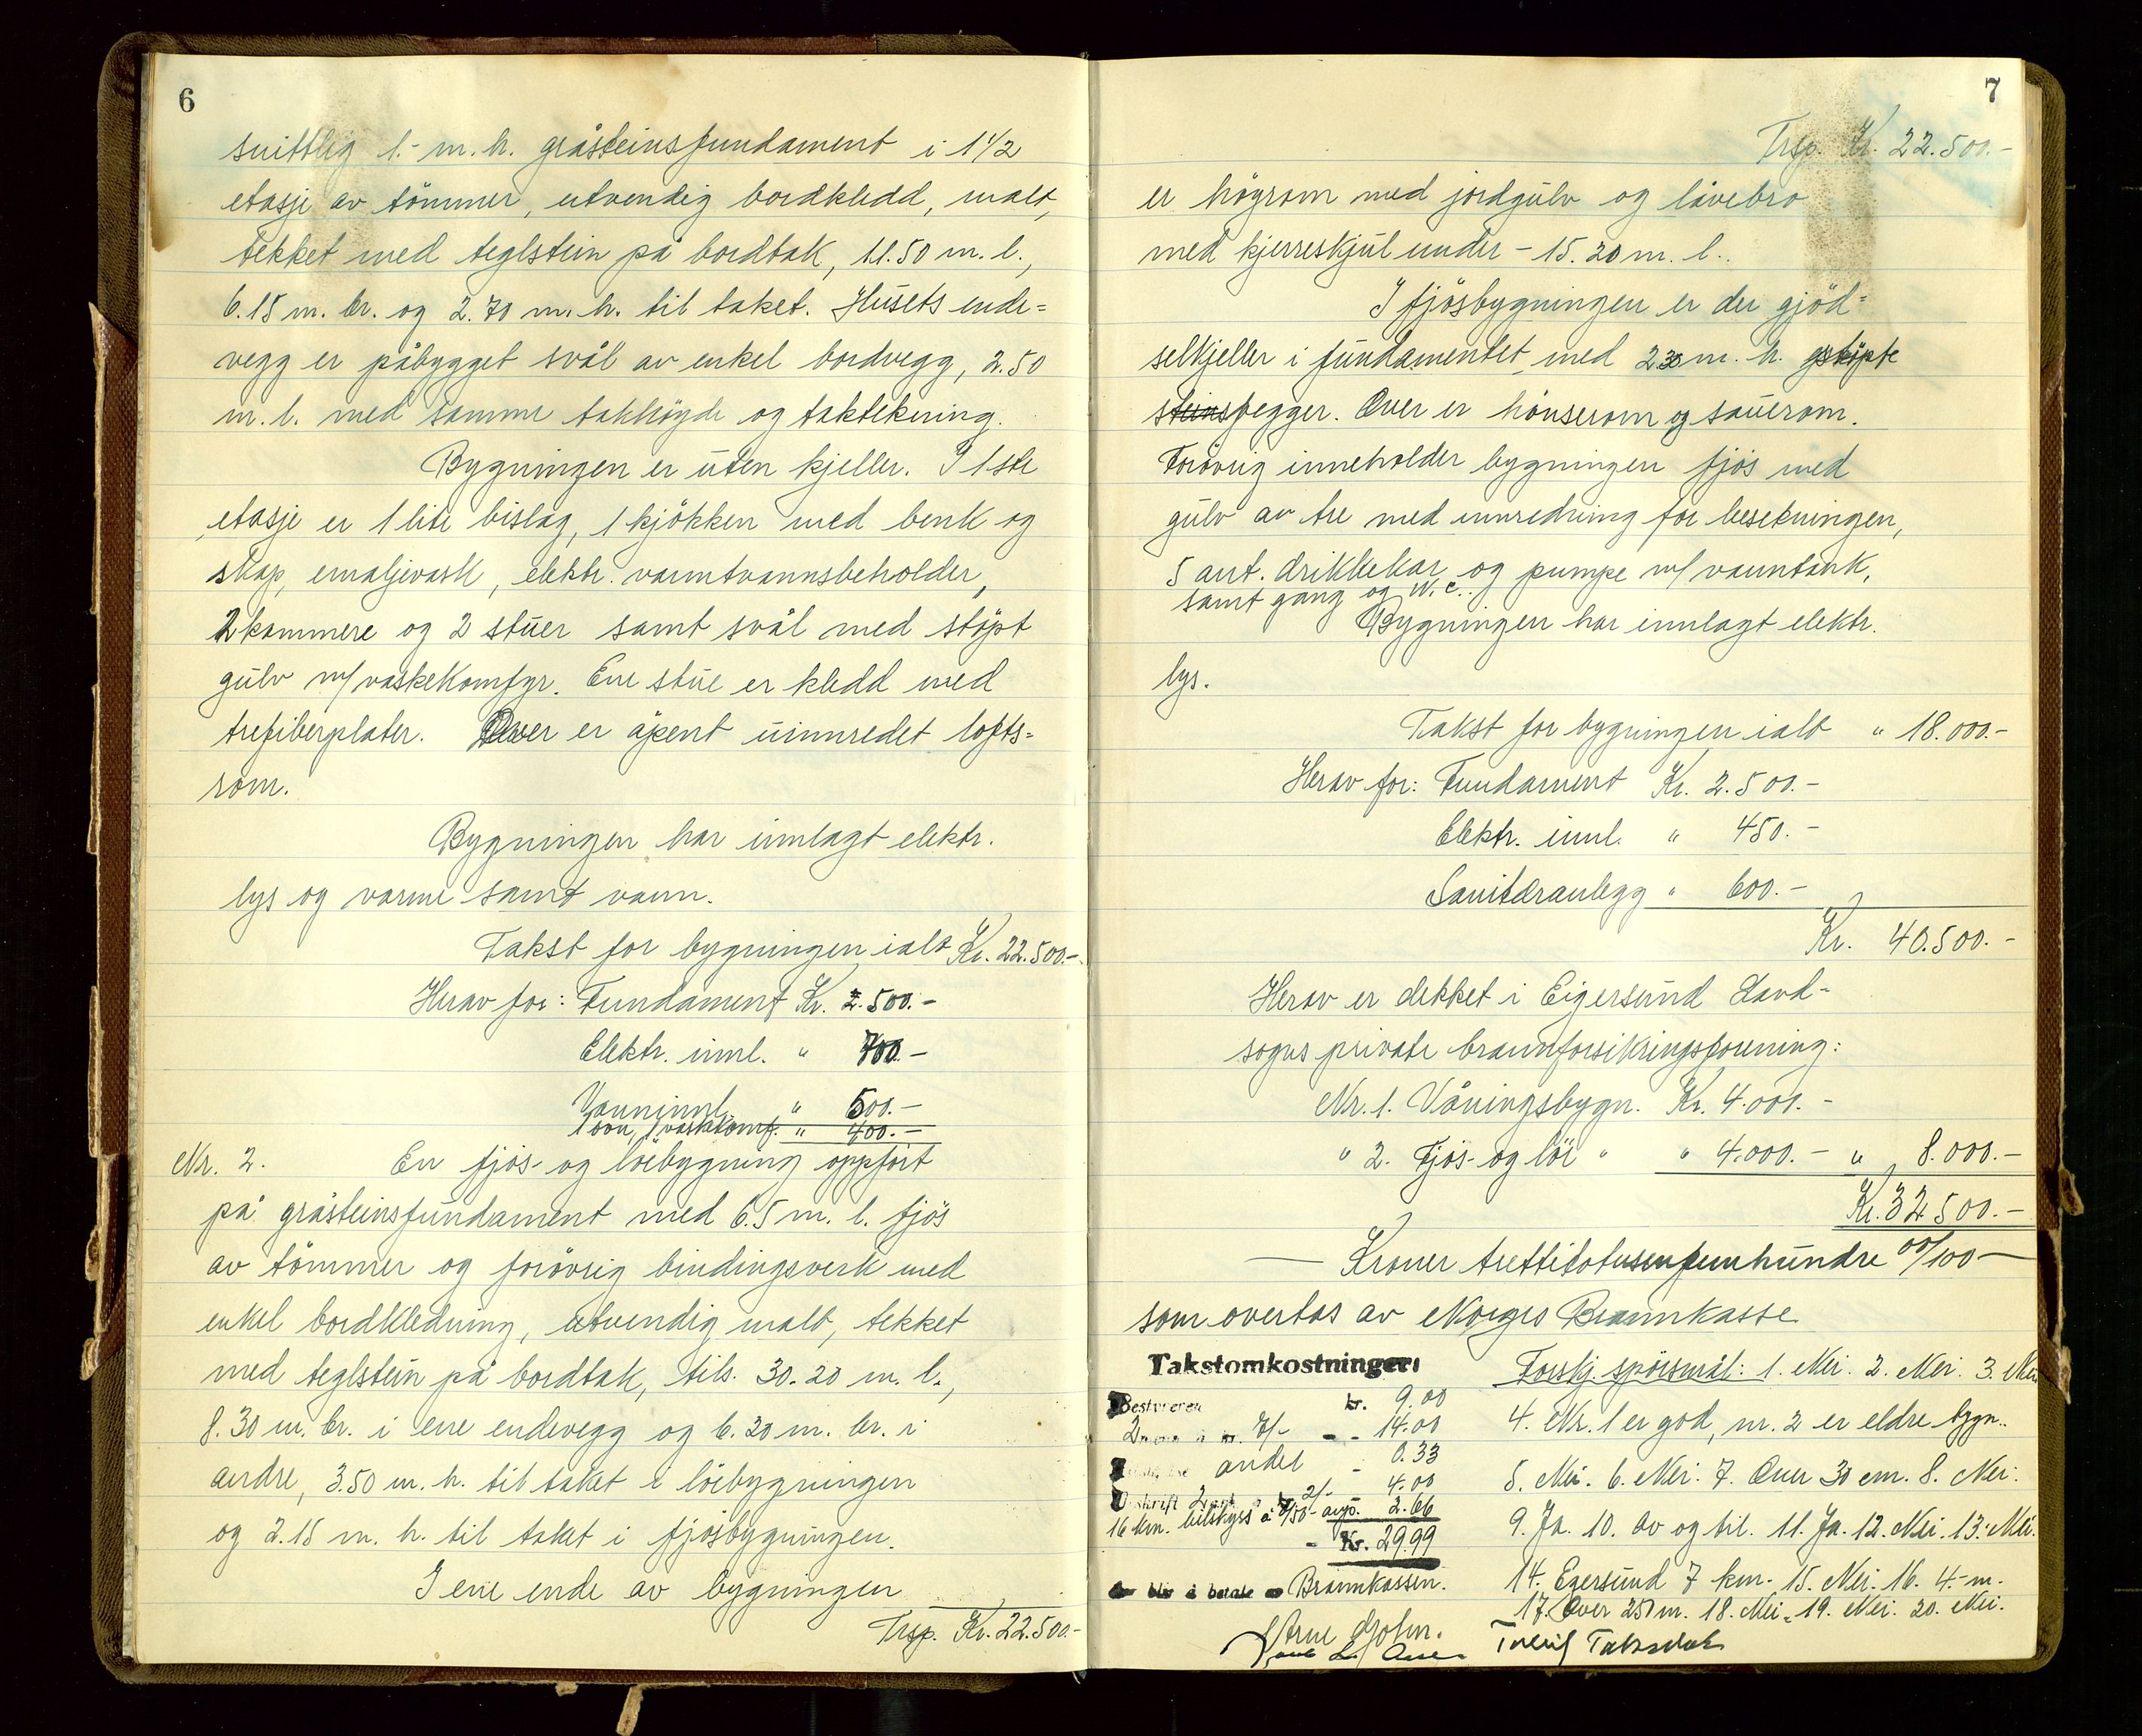 6
snittlig 1.- m. h. gråsteinsfundament i 1 1/2
etasje av tömmer, utvendig bordkledd, malt,
tekket med teglstein på bordtak, 11.50 m. l.,
6.15 m. br. og 2.70 m. h. til taket. Husets ende=
vegg er påbygget svål av enkel bordvegg, 2.50
m. l. med samme takhöyde og taktekning.
Bygningen er uten kjeller. I 1ste
etasje er 1 lite bislag, 1 kjökken med benk og
skap, emaljevask, elektr. varmtvannsbeholder,
2 kammere og 2 stuer samt svål med stöpt
gulv m/vaskekomfyr. Ene stue er kledd med
trefiberplater. Over er åpent uinnredet lofts=
rom.
Bygningen har innlagt elektr.
lys og varme samt vann.
Takst for bygningen ialt Kr. 22.500.-
Herav for: Fundament Kr. 2.500.-
Elektr. innl. " 700.-
Vanninnl. " 500.-
1 ovn, 1 vaskekomf. " 400.-
Nr. 2. En fjös- og löebygning oppfört
på gråsteinsfundament med 6.5 m. l. fjös
av tömmer og forövrig bindingsverk med
enkel bordkledning, utvendig malt, tekket
med teglstein på bordtak, tils. 30.20 m. l.,
8.30 m. br. i ene endevegg og 6.20 m. br. i
andre, 3.50 m. h. til taket i löebygningen
og 2.15 m. h. til taket i fjösbygningen.
I ene ende av bygningen
Trsp. Kr. 22.500.-
7
Trsp. Kr. 22.500.-
er högrom med jordgulv og låvebro
med kjerreskjul under - 15.20 m. l..
I fjösbygningen er der gjöd=
selkjeller i fundamentet med 2.30 m. h. stöpte
steinsvegger. Over er hönserom og sauerom.
Forövrig inneholder bygningen fjös med
gulv av tre med innredning for besetningen,
5 aut. drikkekar og pumpe m/ vanntank,
samt gang og W.C..
Bygningen har innlagt elektr.
lys.
Takst for bygningen ialt " 18.000.-
Herav for: Fundament Kr. 2.500.-
Elektr. innl. " 450.-
Sanitæranlegg " 600.-
Kr. 40.500.-
Herav er dekket i Eigersund Land-
sogns private brannforsikringsforening:
Nr. 1. Våningsbygn. Kr. 4.000.-
" 2. Fjös- og löe " " 4.000.- " 8.000.-
Kr. 32.500.-
— Kroner trettitotusenfemhundre 00/100 —
som overtas av Norges Brannkasse
Takstomkostninger:
Bestyreren kr. 9.00
2 à kr. 7/- - - 14.00
andel - 0.33
Utskrift 2 à kr. 2/- 4.00
16 km. bilskyss à 2.66
- Kr. 29.99
å betale Brannkassen.
Forskj. spörsmål: 1. Nei. 2. Nei. 3. Nei.
4. Nr. 1 er god, nr. 2 er eldre bygn..
5. Nei. 6. Nei. 7. Over 30 cm. 8. Nei.
9. Ja. 10. Av og til. 11. Ja. 12. Nei. 13. Nei.
14. Egersund 7 km. 15. Nei. 16. 4.- m.
17. Over 250 m. 18. Nei. 19. Nei. 20. Nei.
Arne